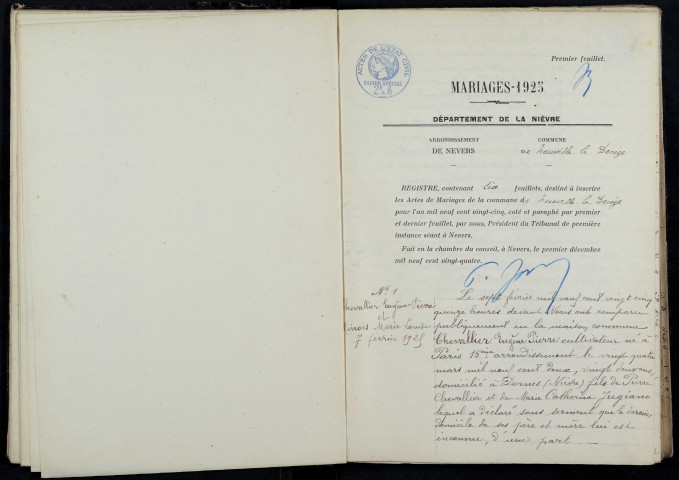 ACTES DE L'ETAT CIVIL
PAPIER SPECIAL
Premier feuillet.
MARIAGES-1925
DÉPARTEMENT DE LA NIÈVRE
ARRONDISSEMENT
DE NEVERS
COMMUNE
De Neuville le Decize
REGISTRE, contenant six feuillets, destiné à inscrire
les Actes de Mariages de la commune de Neuville le Decize
pour l'an mil neuf cent vingt-cinq, coté et paraphé par premier
et dernier feuillet, par nous, Président du Tribunal de première
instance séant à Nevers.
Fait en la chambre du conseil, à Nevers, le premier décembre
mil neuf cent vingt-quatre.
N° 1
Chevallier Eugène Pierre
et
Marie Louise
7 février 1925
Le sept février mil neuf cent vingt cinq
quinze heures devant Nous ont comparu
publiquement en la maison commune
Chevallier Eugène Pierre cultivateur né à
Paris 15eme arrondissement le vingt quatre
mars mil neuf cent deux, vingt deux ans,
domicilié à Dornes (Nièvre) fils de Pierre
Chevallier et de Marie Catherine
lequel a déclaré sous serment que le dernier
domicile de ses père et mère lui est
inconnu, d'une part